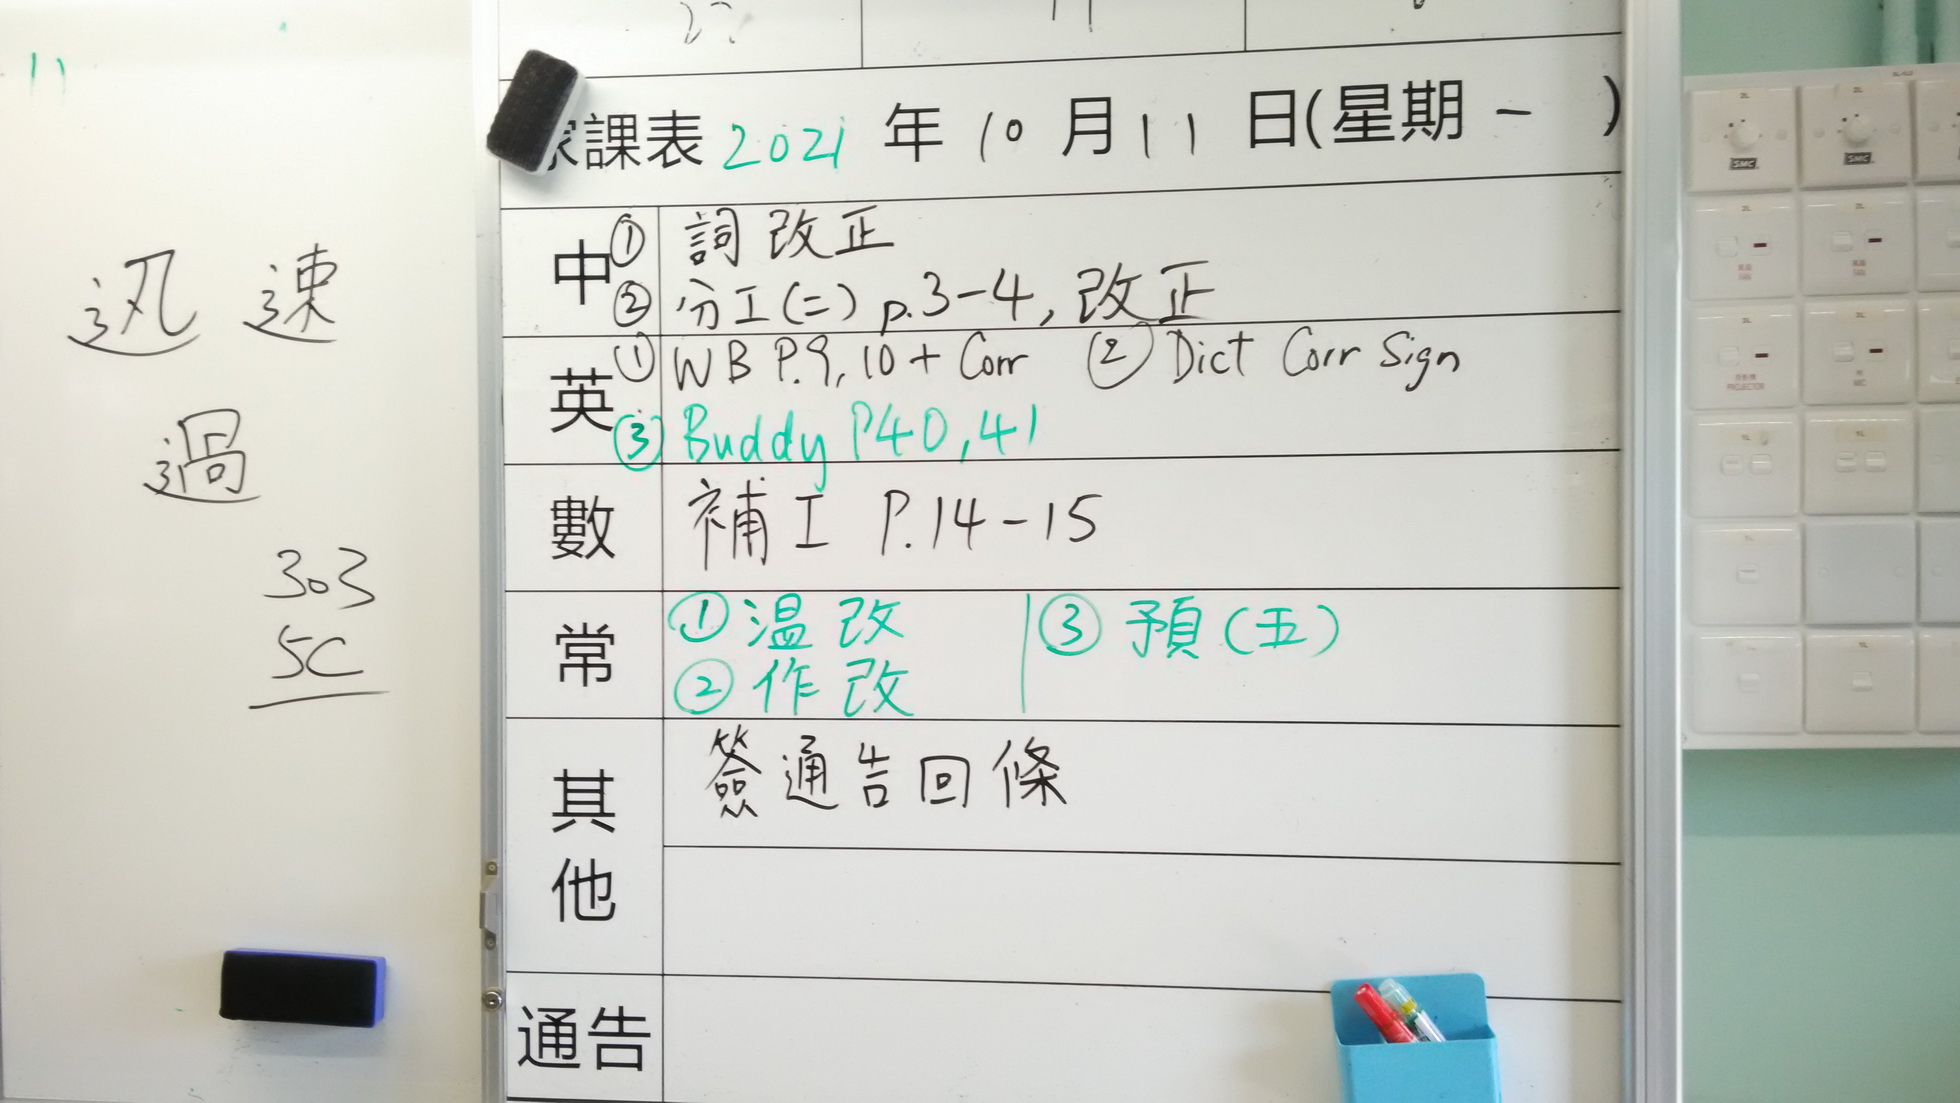 迅速
過
303
5C
課表 2021 年 10 月 11 日(星期一)
中 ① 詞改正
② 分工(二) p.3-4, 改正
英 ① WB P.9, 10 + Corr ② Dict Corr Sign
③ Buddy P40, 41
數 補工 P.14-15
常 ① 温改 ③ 預(五)
② 作改
其他 簽通告回條
通告
SMC SMC
PROJECTOR